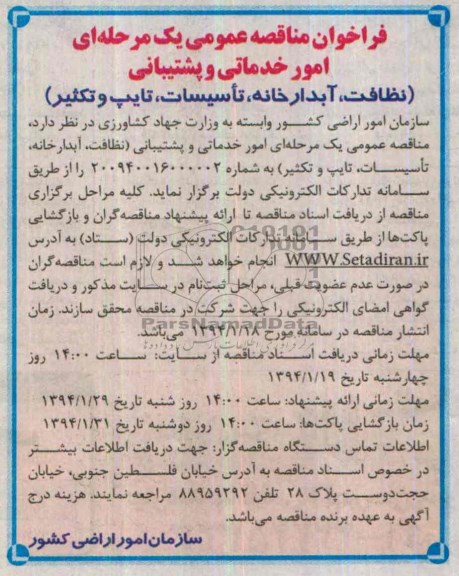 فراخوان مناقصه عمومی یک مرحله‌ای
امور خدماتی و پشتیبانی
(نظافت، آبدارخانه، تأسیسات، تایپ و تکثیر)
سازمان امور اراضی کشور وابسته به وزارت جهاد کشاورزی در نظر دارد،
مناقصه عمومی یک مرحله‌ای امور خدماتی و پشتیبانی (نظافت، آبدارخانه،
تأسیسات، تایپ و تکثیر) به شماره ۲۰۰۹۴۰۰۱۶۰۰۰۰۰۲ را از طریق
سامانه تدارکات الکترونیکی دولت برگزار نماید. کلیه مراحل برگزاری
مناقصه از دریافت اسناد مناقصه تا ارائه پیشنهاد مناقصه‌گران و بازگشایی
پاکت‌ها از طریق تدارکات الکترونیکی دولت (ستاد) به آدرس
WWW.Setadiran.ir انجام خواهد شد و لازم است مناقصه‌گران
در صورت عدم عضویت قبلی، مراحل ثبت‌نام در سایت مذکور و دریافت
گواهی امضای الکترونیکی را جهت شرکت در مناقصه محقق سازند. زمان
انتشار مناقصه در سامانه مورخ ۱۳۹۴/۱/۱۸ می‌باشد.
مهلت زمانی دریافت اسناد مناقصه از سایت: ساعت ۱۴:۰۰ روز
چهارشنبه تاریخ ۱۳۹۴/۱/۱۹
مهلت زمانی ارائه پیشنهاد: ساعت ۱۴:۰۰ روز شنبه تاریخ ۱۳۹۴/۱/۲۹
زمان بازگشایی پاکت‌ها: ساعت ۱۴:۰۰ روز دوشنبه تاریخ ۱۳۹۴/۱/۳۱
اطلاعات تماس دستگاه مناقصه‌گزار: جهت دریافت اطلاعات بیشتر
در خصوص اسناد مناقصه به آدرس خیابان فلسطین جنوبی، خیابان
حجت‌دوست پلاک ۲۸ تلفن ۸۸۹۵۹۲۹۲ مراجعه نمایند. هزینه درج
آگهی به عهده برنده مناقصه می‌باشد.
سازمان امور اراضی کشور
ParsNamadData